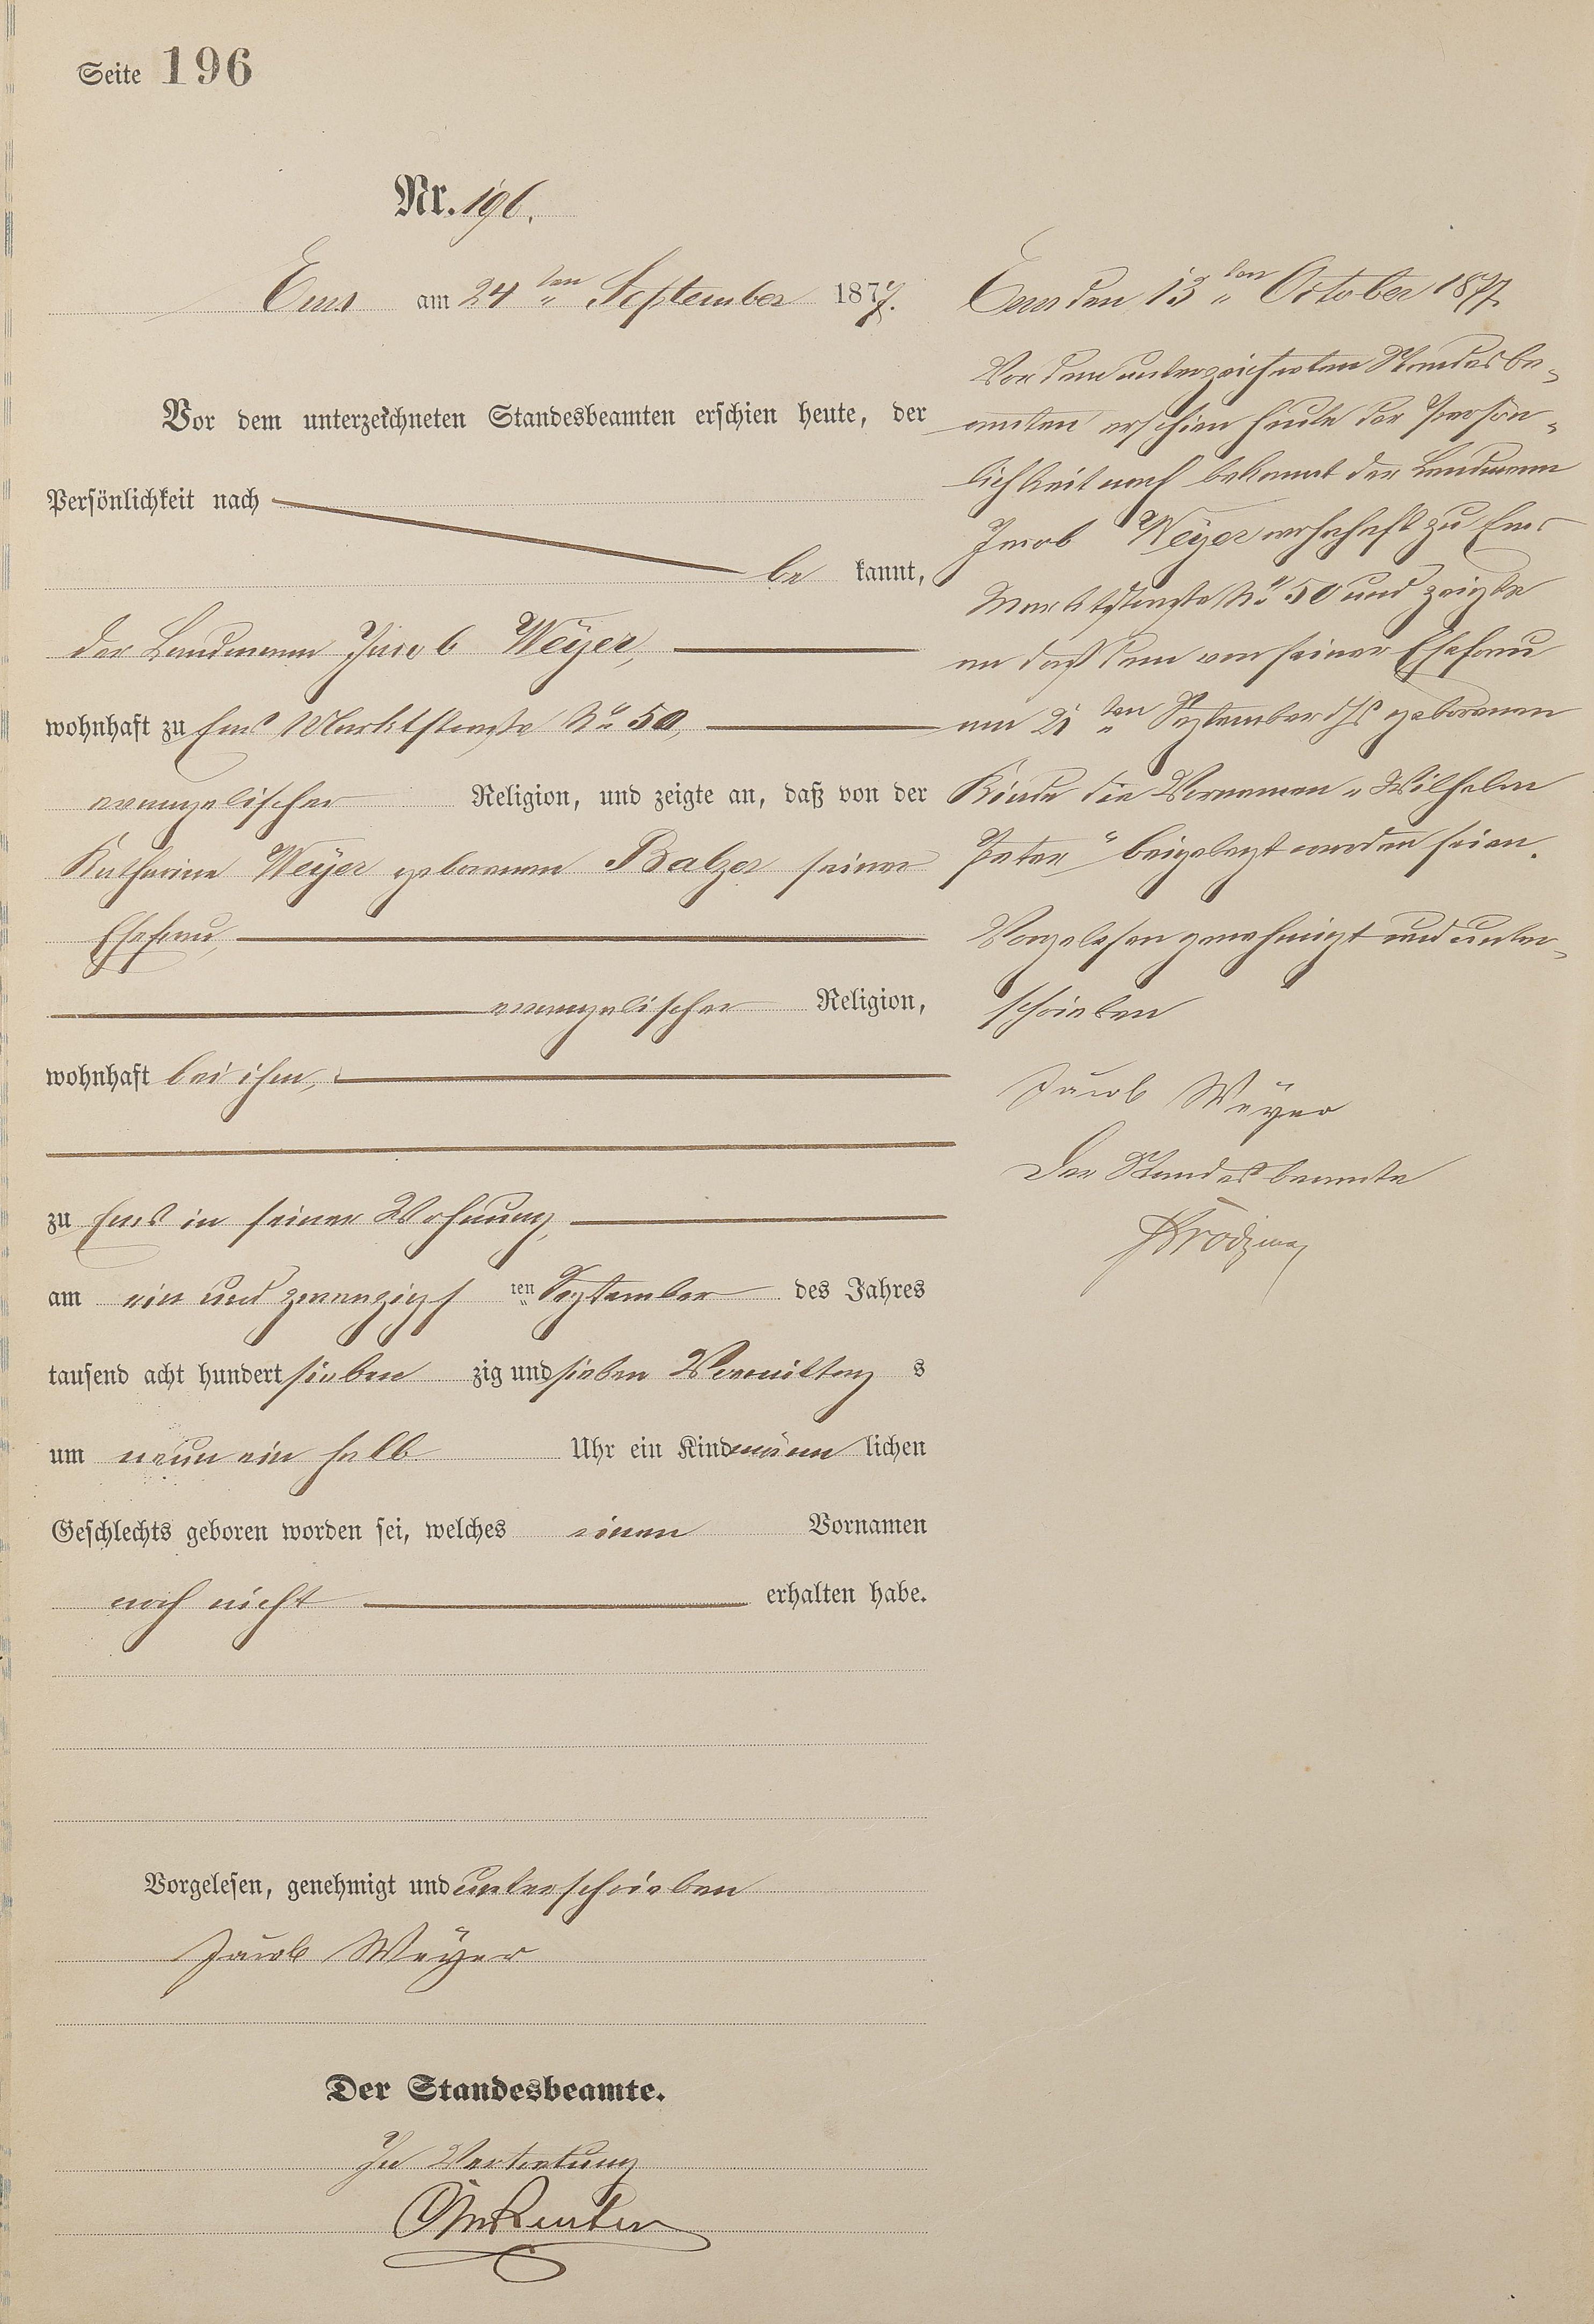 Seite 196
Nr. 196.
Ems am 24ten September 1877.
Vor dem unterzeichneten Standesbeamten erschien heute, der
Persönlichkeit nach
be kannt,
der Landmann Jacob Weÿer,
wohnhaft zu Ems Marktstraße No 50,
evangelischer Religion, und zeigte an, daß von der
Katharina Weÿer geborenen Balzer seiner
Ehefrau,
evangelischer Religion,
wohnhaft bei ihm,
zu Ems in seiner Wohnung,
am ein und zwanzigs ten September des Jahres
tausend acht hundert sieben zig und sieben Vormittag s
um neun ein halb Uhr ein Kind männ lichen
Geschlechts geboren worden sei, welches einen Vornamen
noch nicht erhalten habe.
Vorgelesen, genehmigt und unterschrieben
Jacob Weÿer
Der Standesbeamte.
In Vertretung
Ems den 13ten October 1877.
Vor dem unterzeichneten Standesbe-
amten erschien heute der Persön-
lichkeit nach bekannt der Landmann
Jacob Weÿer wohnhaft zu Ems
Marktstraße No 50 und zeigte
an daß dem von seiner Ehefrau
am 21ten September djs geborenen
Kinde die Vornamen „Wilhelm
Peter“ beigelegt worden seien.
Vorgelesen genehmigt und unter-
schrieben
Jacob Weÿer
Der Standesbeamte